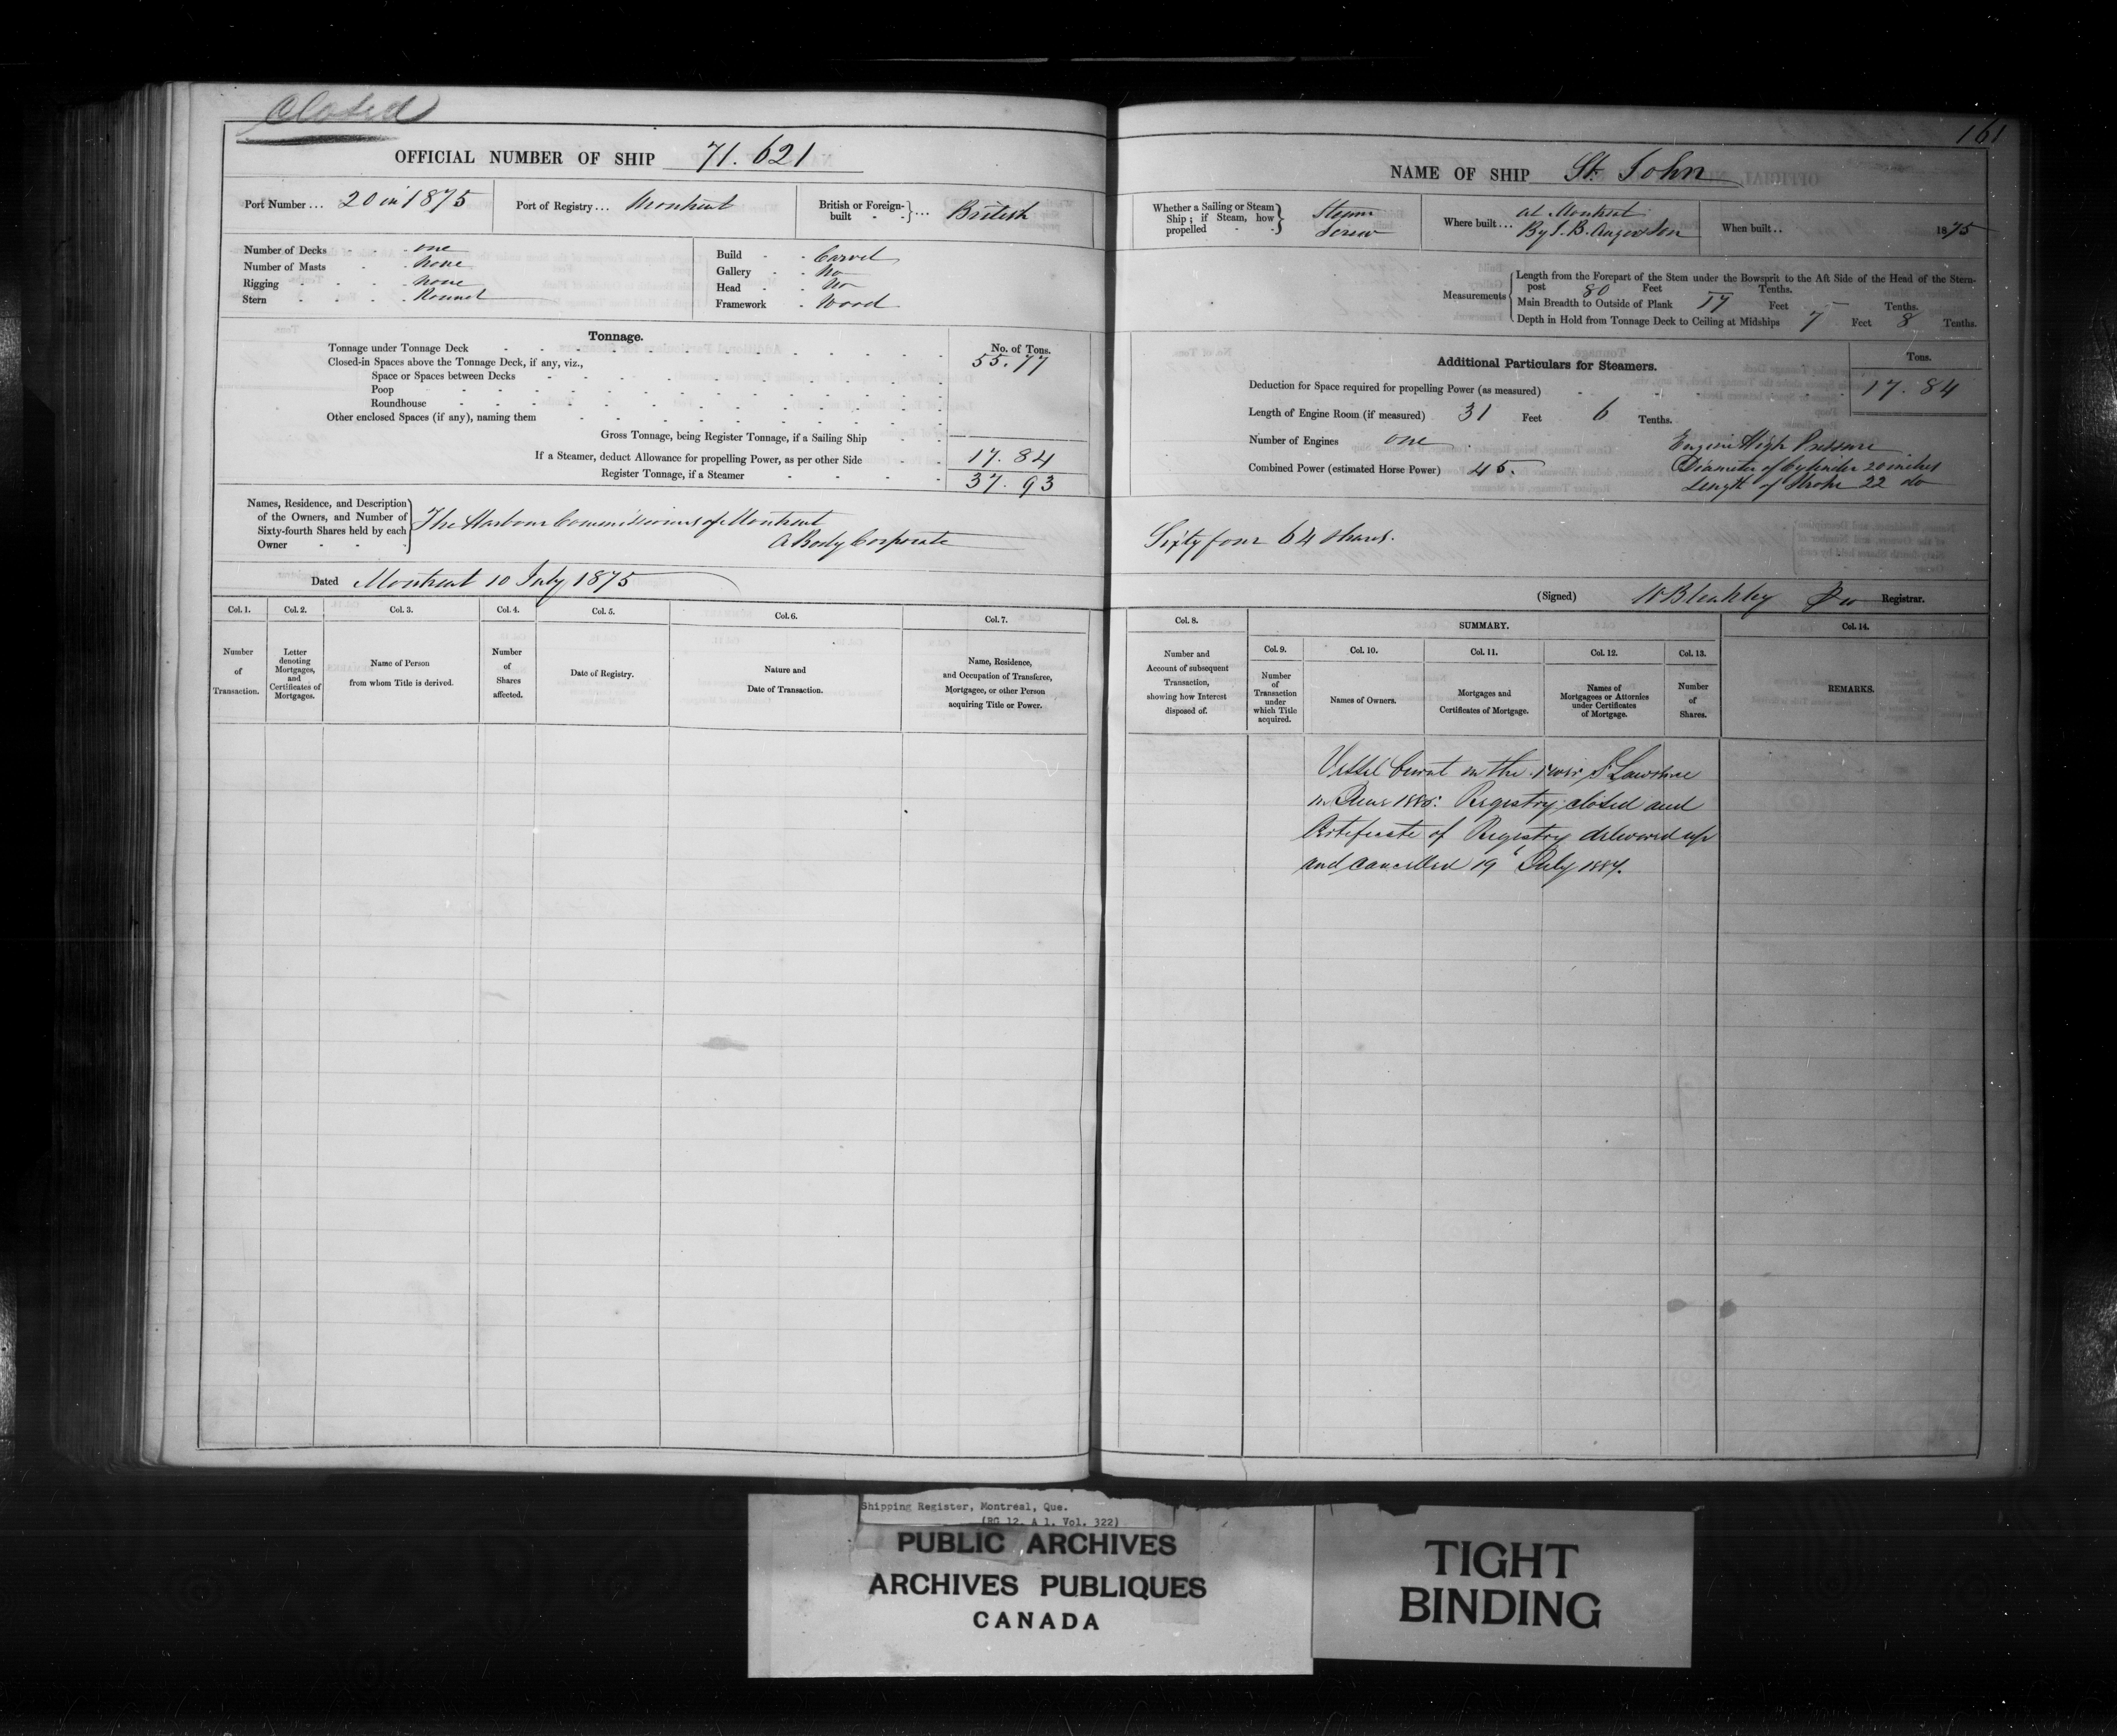 Closed
161
OFFICIAL NUMBER OF SHIP 71.621
Port Number... 20 in 1875
Port of Registry... Montreal
British or Foreign-built ... British
Number of Decks one
Number of Masts None
Rigging None
Stern Round
Build Carvel
Gallery No
Head No
Framework Wood
Tonnage.
No. of Tons.
Tonnage under Tonnage Deck 55.77
Closed-in Spaces above the Tonnage Deck, if any, viz.,
Space or Spaces between Decks
Poop
Roundhouse
Other enclosed Spaces (if any), naming them
Gross Tonnage, being Register Tonnage, if a Sailing Ship
If a Steamer, deduct Allowance for propelling Power, as per other Side 17.84
Register Tonnage, if a Steamer 37.93
Names, Residence, and Description
of the Owners, and Number of
Sixty-fourth Shares held by each
Owner
The Harbour Commissioners of Montreal
A Body Corporate
Dated Montreal 10 July 1875
Col. 1. Col. 2. Col. 3. Col. 4. Col. 5. Col. 6. Col. 7.
Number of Transaction.
Letter denoting Mortgages, and Certificates of Mortgages.
Name of Person from whom Title is derived.
Number of Shares affected.
Date of Registry.
Nature and Date of Transaction.
Name, Residence, and Occupation of Transferee, Mortgagee, or other Person acquiring Title or Power.
NAME OF SHIP St. John
Whether a Sailing or Steam
Ship; if Steam, how
propelled
Steam
Screw
Where built... At Montreal
By
Son
When built.. 1875
Measurements
Length from the Forepart of the Stem under the Bowsprit to the Aft Side of the Head of the Stern-
post 80 Feet Tenths.
Main Breadth to Outside of Plank 17 Feet Tenths.
Depth in Hold from Tonnage Deck to Ceiling at Midships 7 Feet 8 Tenths.
Additional Particulars for Steamers.
Tons.
Deduction for Space required for propelling Power (as measured) 17.84
Length of Engine Room (if measured) 31 Feet 6 Tenths.
Number of Engines one
Combined Power (estimated Horse Power) 45.
Engine High Pressure
Diameter of Cylinder 20 inches
Length of Stroke 22 do
Sixty four 64 shares.
(Signed) Registrar.
Col. 8. SUMMARY. Col. 14.
Col. 9. Col. 10. Col. 11. Col. 12. Col. 13.
Number and Account of subsequent Transaction, showing how Interest disposed of.
Number of Transaction under which Title acquired.
Names of Owners.
Mortgages and Certificates of Mortgage.
Names of Mortgagees or Attornies under Certificates of Mortgage.
Number of Shares.
REMARKS.
Vessel burnt in the river St Lawrence
in Registry closed and
Certificate of Registry delivered up
and cancelled 19 July
Shipping Register, Montreal, Que.
(RG 12, A 1, Vol. 322)
PUBLIC ARCHIVES
ARCHIVES PUBLIQUES
CANADA
TIGHT
BINDING